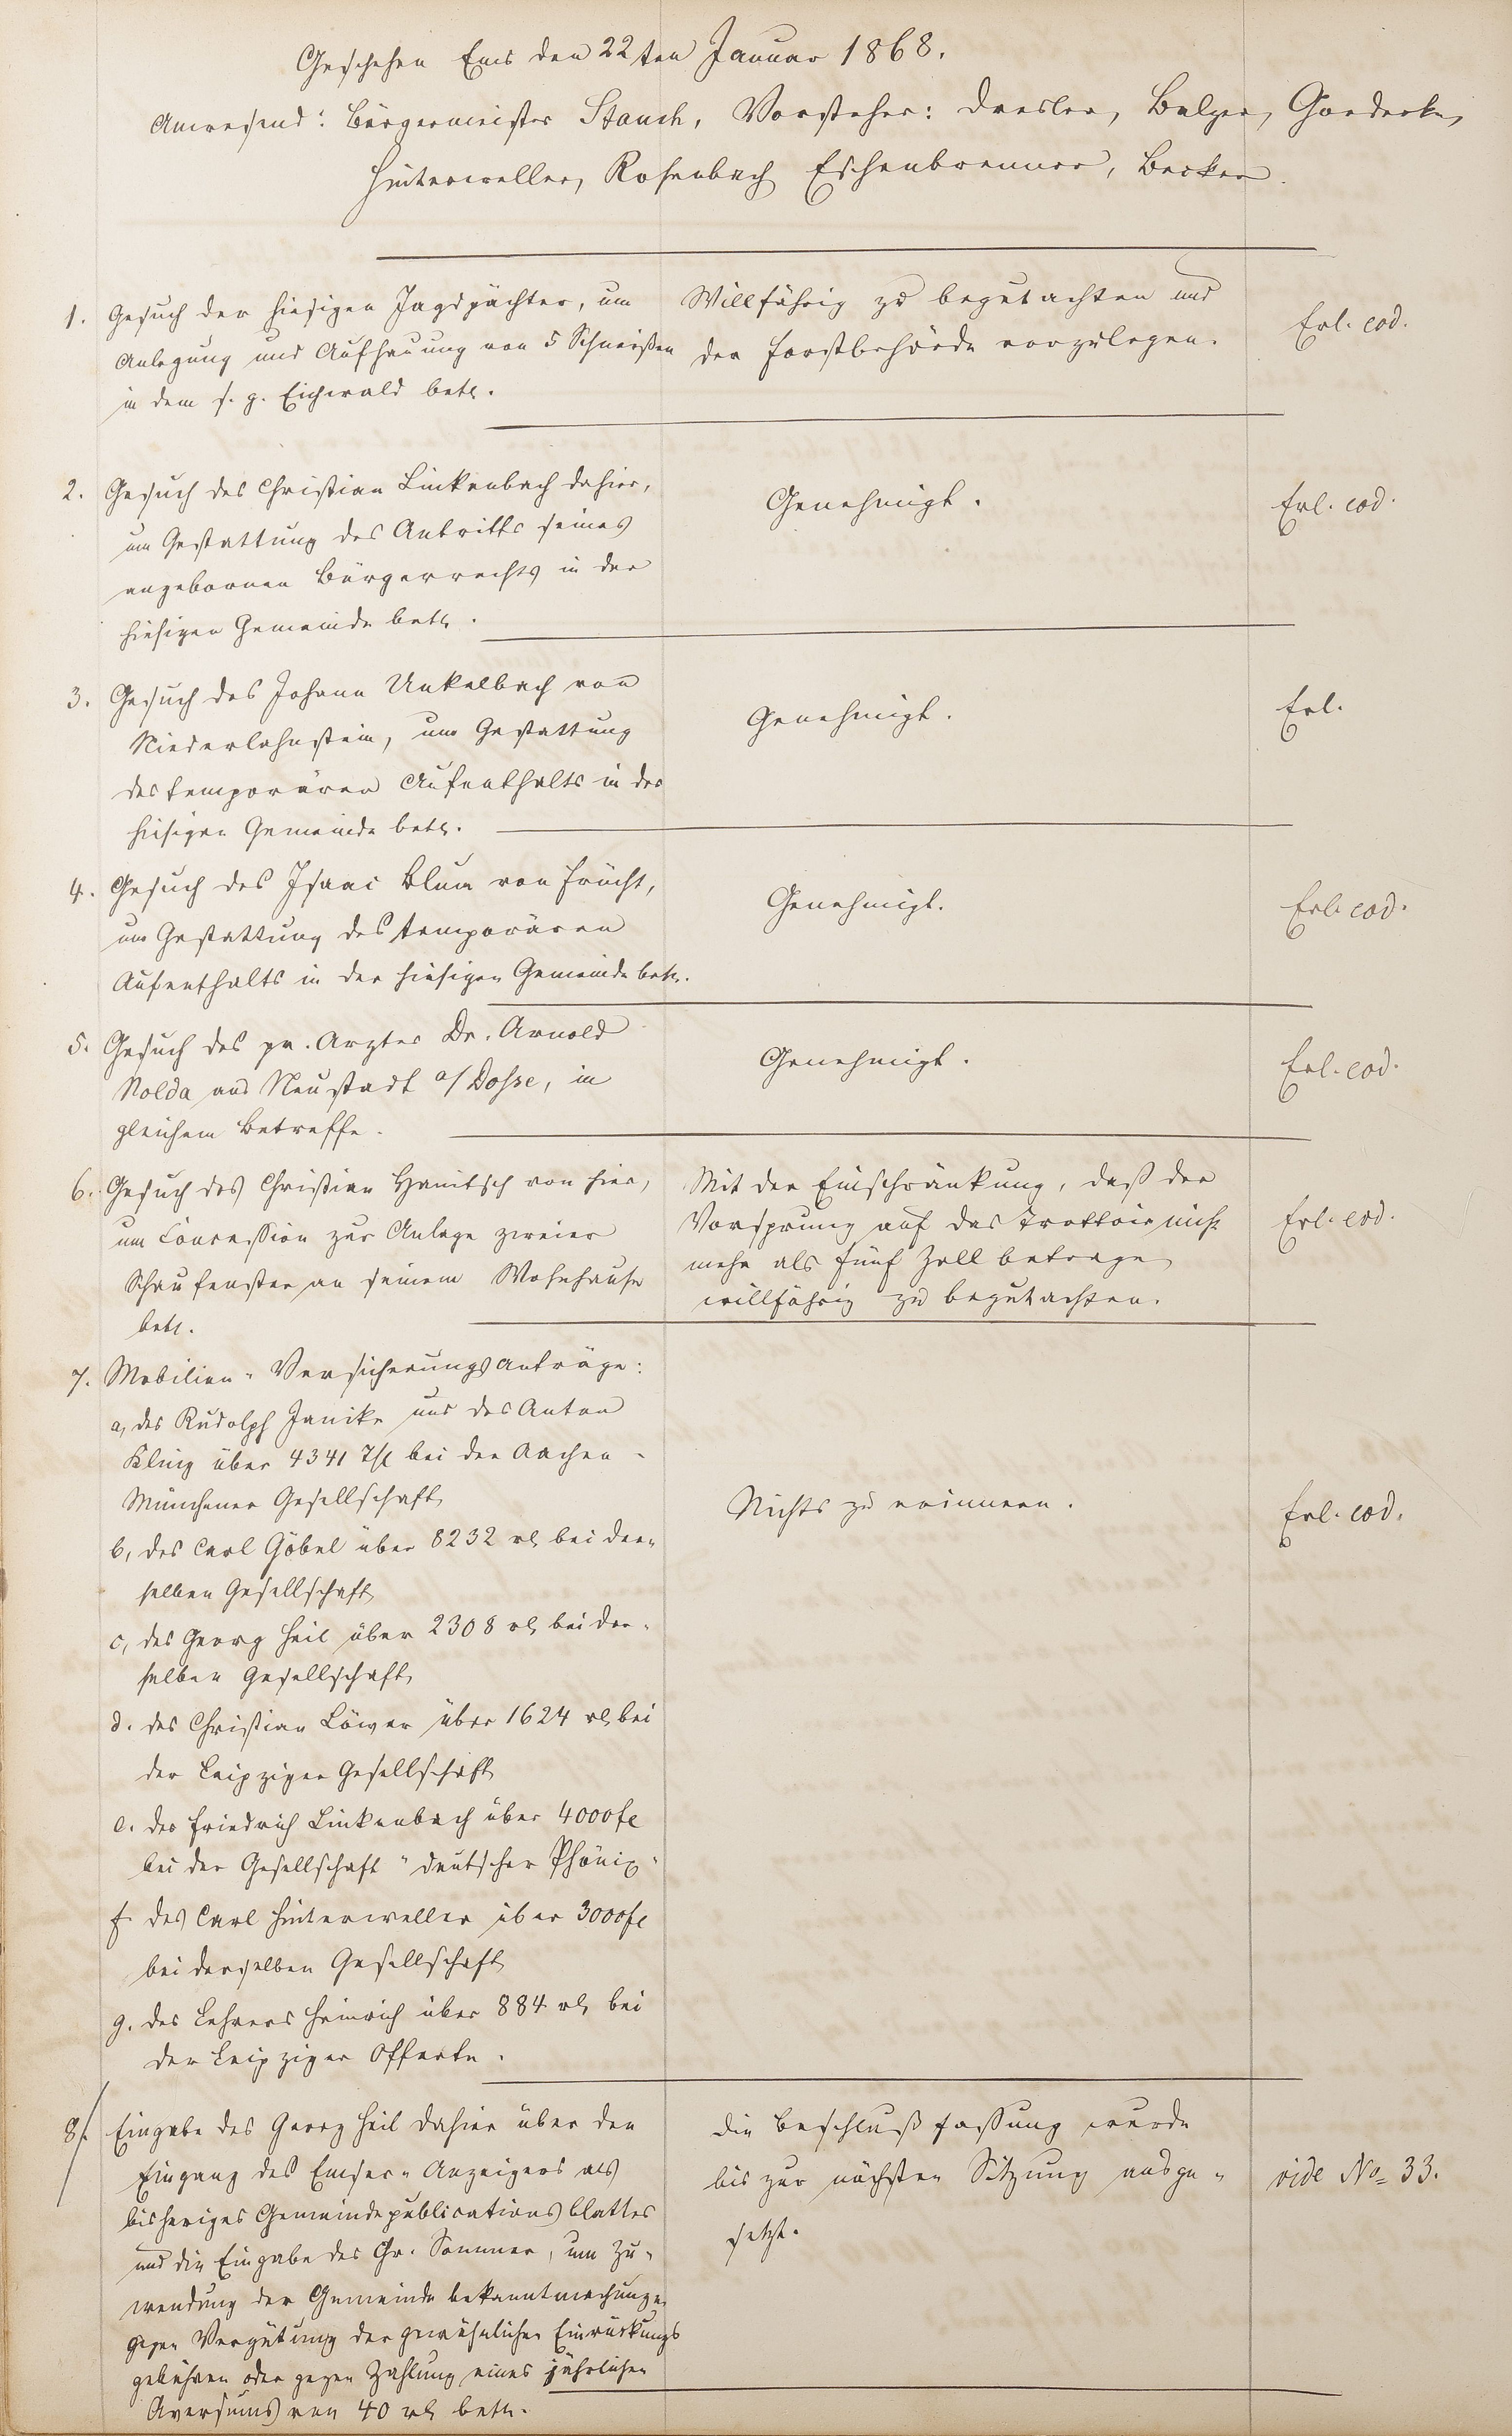 Geschehen Ems den 22ten Januar 1868.
Anwesend: Bürgermeister Stauch, Vorsteher: Dresler, Balzer, Goedecke,
Hinterweller, Rosenbach Eschenbrenner, Becker.
1. Gesuch der hiesigen Jagdpächter, um
Anlegung und Aufhauung von 5 Schneißen
in dem s. g. Eichwald betr.
Willfährig zu begutachten und
der Forstbehörde vorzulegen.
Erl. eod.
2. Gesuch des Christian Linkenbach dahier,
um Gestattung des Antritts seines
angebornen Bürgerrechts in der
hiesigen Gemeinde betr.
Genehmigt.
Erl. eod.
3. Gesuch des Johann Unkelbach von
Niederlahnstein, um Gestattung
des temporären Aufenthalts in der
hiesigen Gemeinde betr.
Genehmigt.
Erl.
4. Gesuch des Isaac Blum von Frücht,
um Gestattung des temporären
Aufenthalts in der hiesigen Gemeinde betr.
Genehmigt.
Erl. eod.
5. Gesuch des pr. Arztes Dr. Arnold
Nolda aus Neustadt a/Dosse, in
gleichem Betreffe.
Genehmigt.
Erl. eod.
6. Gesuch des Christian Hanitsch von hier,
um Concession zur Anlage zweier
Schaufenster an seinem Wohnhause
betr.
Mit der Einschränkung, daß der
Vorsprung auf das Trottoir nicht
mehr als fünf Zoll betrage,
willfährig zu begutachten.
Erl. eod.
7. Mobilien-Versicherungsanträge:
a, des Rudolph Janike und des Anton
Kling über 4341 Thl bei der Aachen-
Münchener Gesellschaft
b, des Carl Göbel über 8232 rl bei der-
selben Gesellschaft
c, des Georg Heil über 2308 rl bei der-
selben Gesellschaft
d. des Christian Löwer über 1624 rl bei
der Leipziger Gesellschaft
e. des Friedrich Linkenbach über 4000 fl
bei der Gesellschaft "deutscher Phönix"
f. des Carl Hinterweller über 3000 fl
bei derselben Gesellschaft
g. des Lehrers Heinrich über 884 rl bei
der Leipziger Offerte.
Nichts zu erinnern.
Erl. eod.
8. Eingabe des Georg Heil dahier über den
Eingang des Emser-Anzeigers als
bisheriges Gemeindepublicationsblattes
und die Eingabe des Chr. Sommer, um Zu-
wendung der Gemeindebekanntmachungen
gegen Vergütung der gewöhnlichen Einrückungs
gebühren oder gegen Zahlung eines jährlichen
Aversums von 40 rl betr.
Die Beschlußfassung wurde
bis zur nächsten Sitzung ausge-
setzt.
vide No. 33.